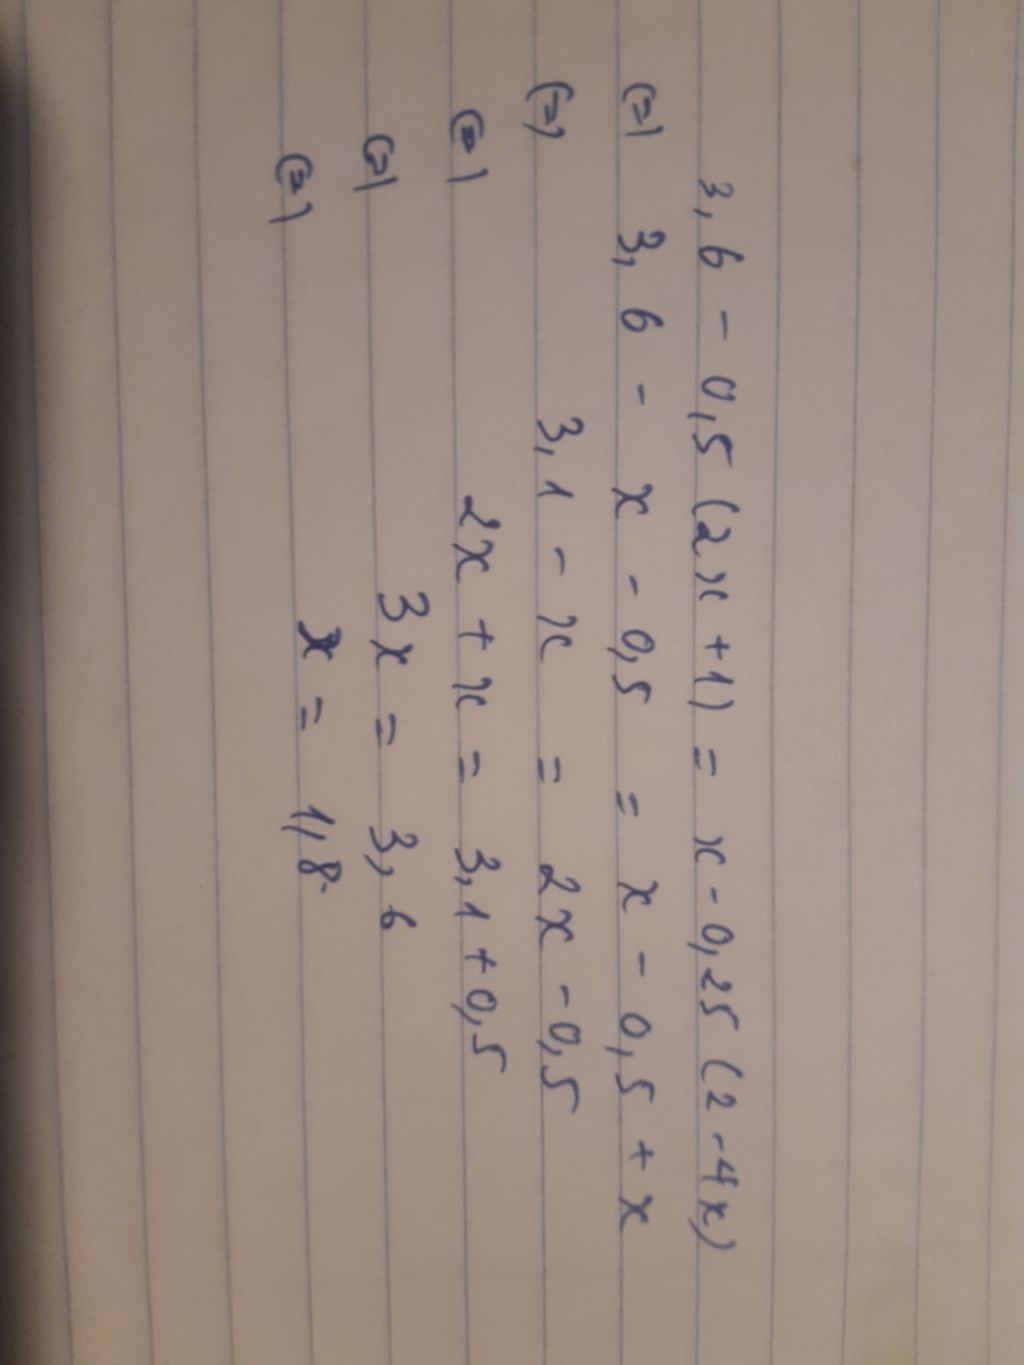 3,6 - 0,5 (2x + 1) = x - 0,25 (2 - 4x)
(=) 3,6 - x - 0,5 = x - 0,5 + x
(=) 3,1 - x = 2x - 0,5
(=) 2x + x = 3,1 + 0,5
(=) 3x = 3,6
(=) x = 1,8